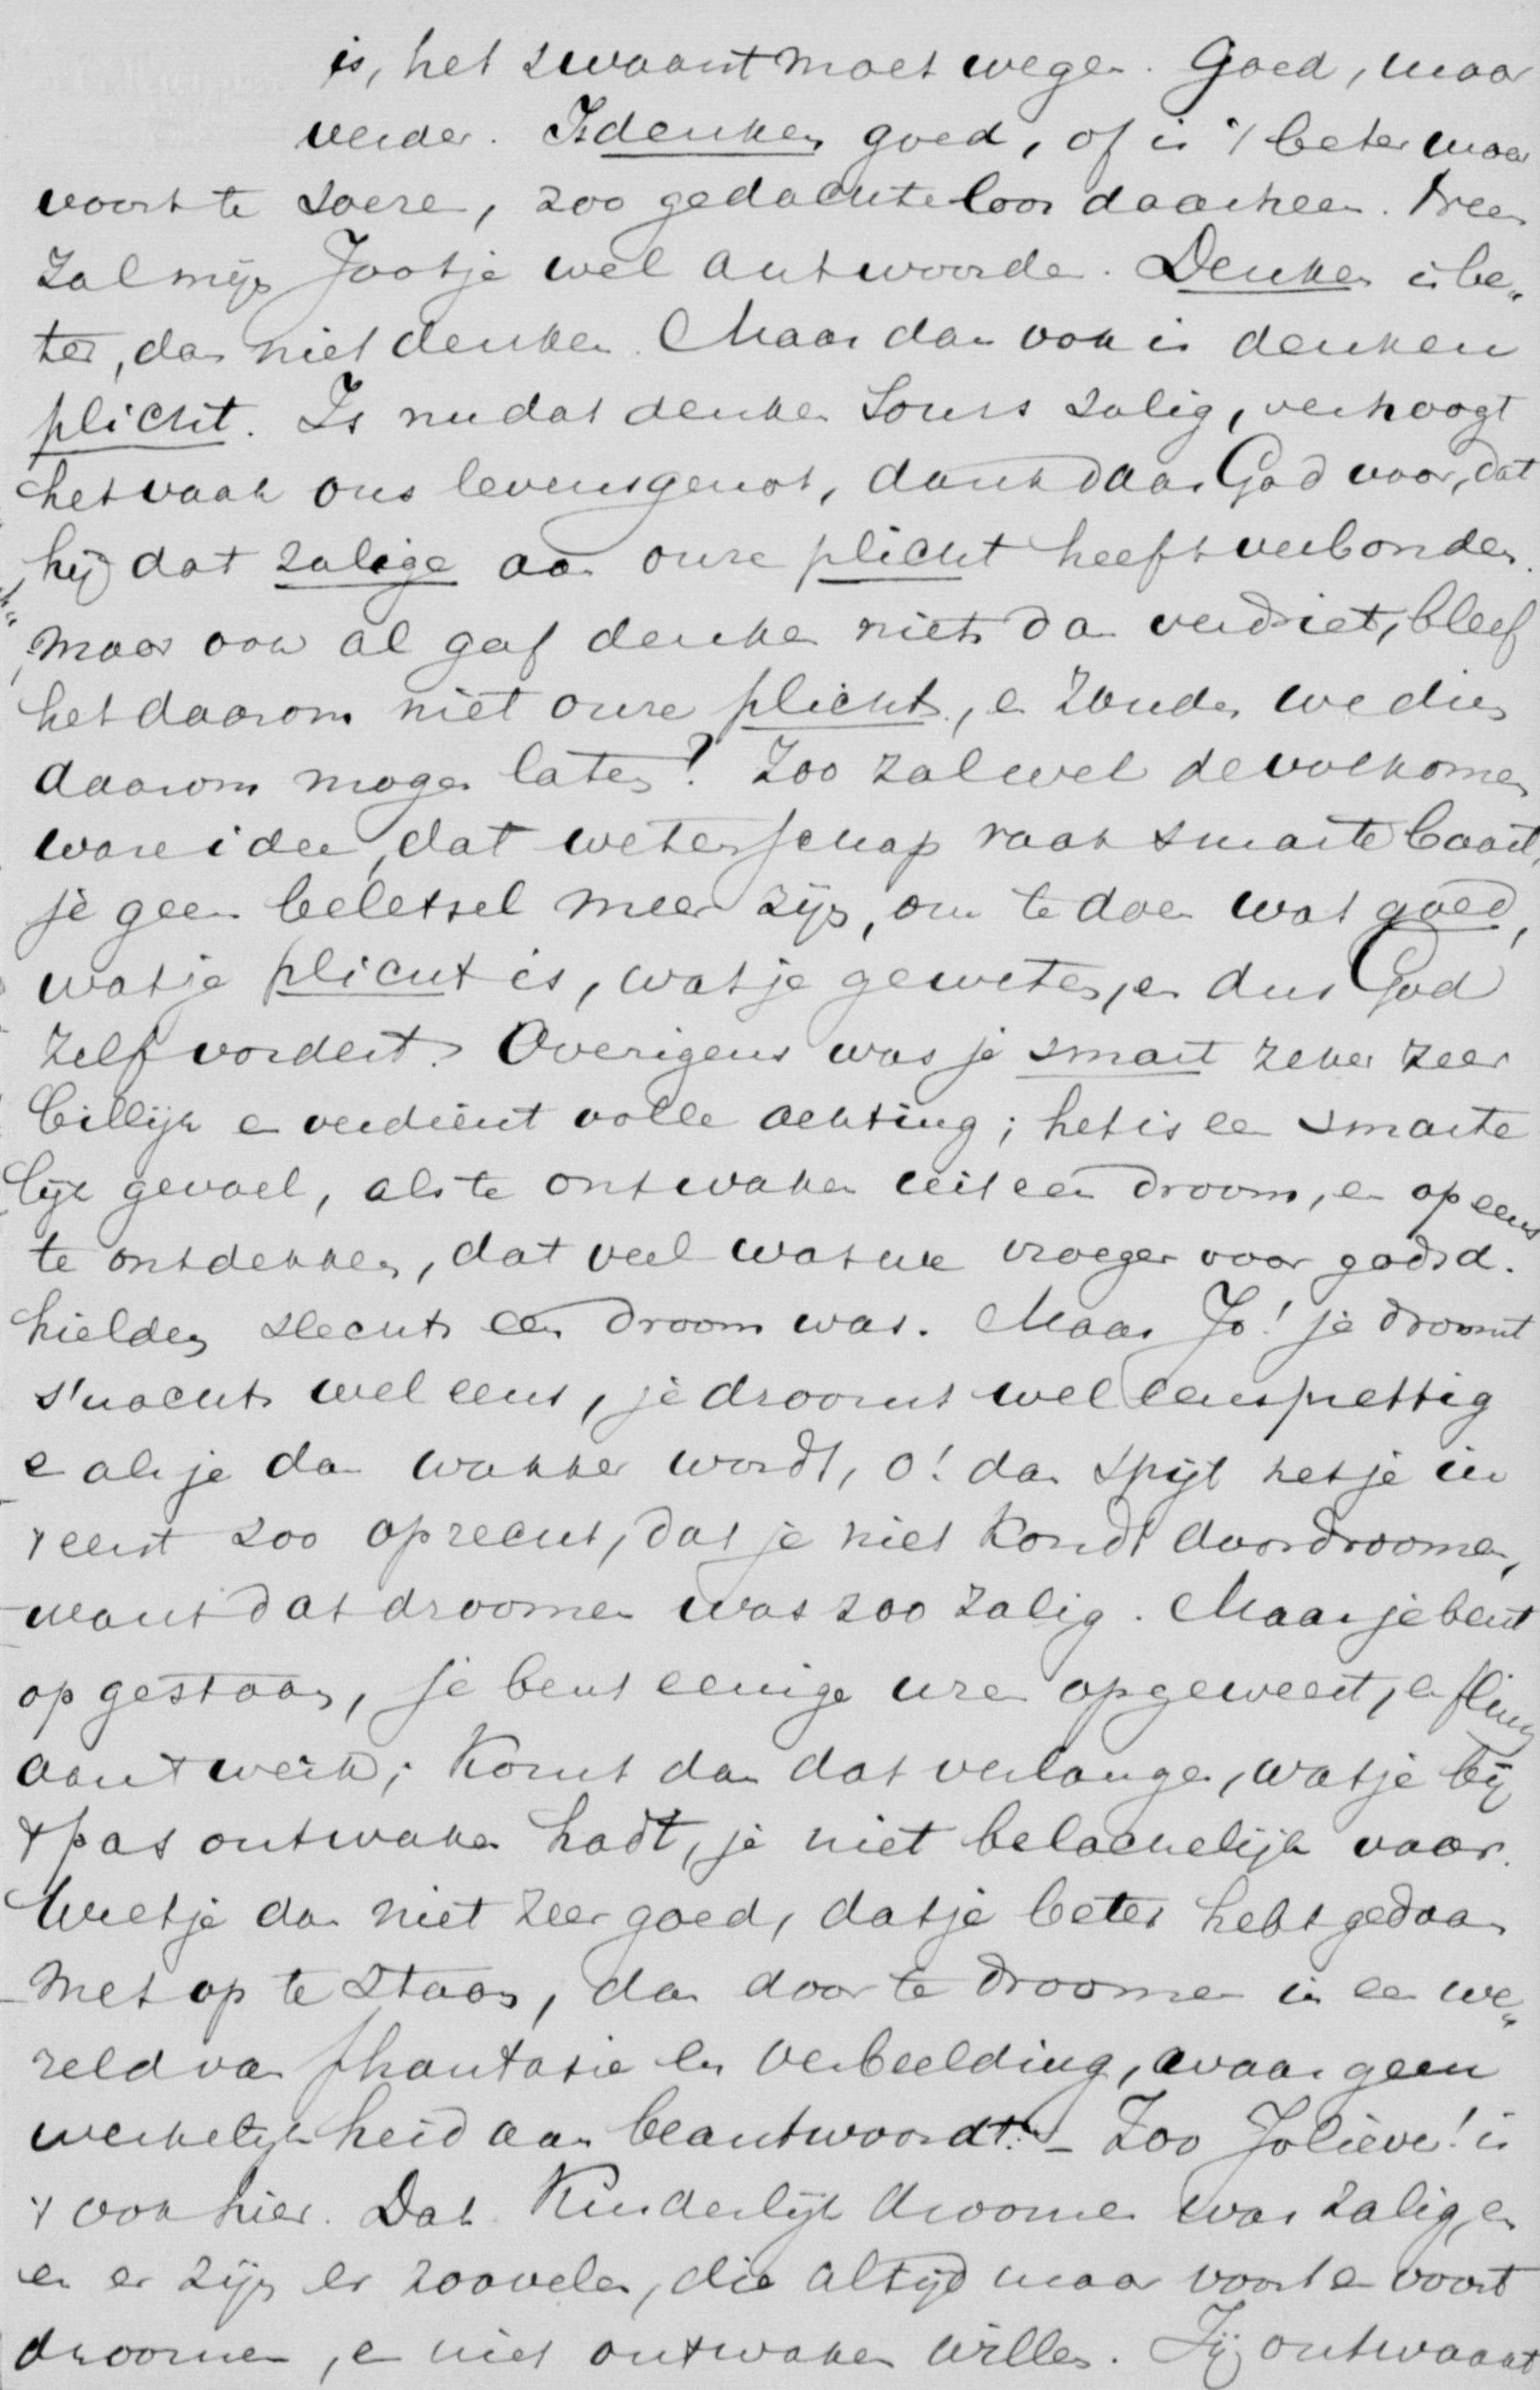 is, het zwaarst moet wegen. Goed, maar
verder. Is denken goed, of is 't beter maar
voort te soezen, zoo gedachteloos daarheen. Neen
zal mijn Jootje wel antwoorden. Denken is be„
ter, dan niet denken. Maar dan ook is denken
plicht. Is nu dat denken soms zalig, verhoogt
het vaak ons levensgenot, dank daar God voor, dat
hij dat zalige aan onze plicht heeft verbonden.
maar ook al gaf denken niets dan verdriet, bleef
het daarom niet onze plicht, en zouden we dien
daarom mogen laten? Zoo zal wel de volkomen
ware idee, dat wetenschap vaak smarte baart,
je geen beletsel meer zijn, om te doen wat goed,
wat je plicht is, wat je geweten, en dus God
zelf vordert. Overigens was je smart zeker zeer
billijk en verdient volle achting; het is een smarte
lijk gevoel, als te ontwaken uit een droom, en opeens
te ontdekken, dat veel wat we vroeger voor godsd.
hielden slechts een droom was. Maar Jo! je droomt
s'nachts wel eens, je droomt wel eens prettig
en als je dan wakker wordt, o! dan spijt het je in
't eerst zoo oprecht, dat je niet kondt doordroomen,
want dat droomen was zoo zalig. Maar je bent
opgestaan, je bent eenige uren opgeweest, en flink
aan 't werk; komt dan dat verlangen, wat je bij
't pas ontwaken hadt, je niet belachelijk voor.
Weet je dan niet zeer goed, dat je beter hebt gedaan
met op te staan, dan door te droomen in een we„
reld van phantasie en verbeelding, waar geen
werkelijkheid aan beantwoordt. – Zoo Jo lieve! is
't ook hier. Dat kinderlijk droomen was zalig, en
en er zijn er zoovelen, die altijd maar voort en voort
droomen, en niet ontwaken willen. Jij ontwaakt